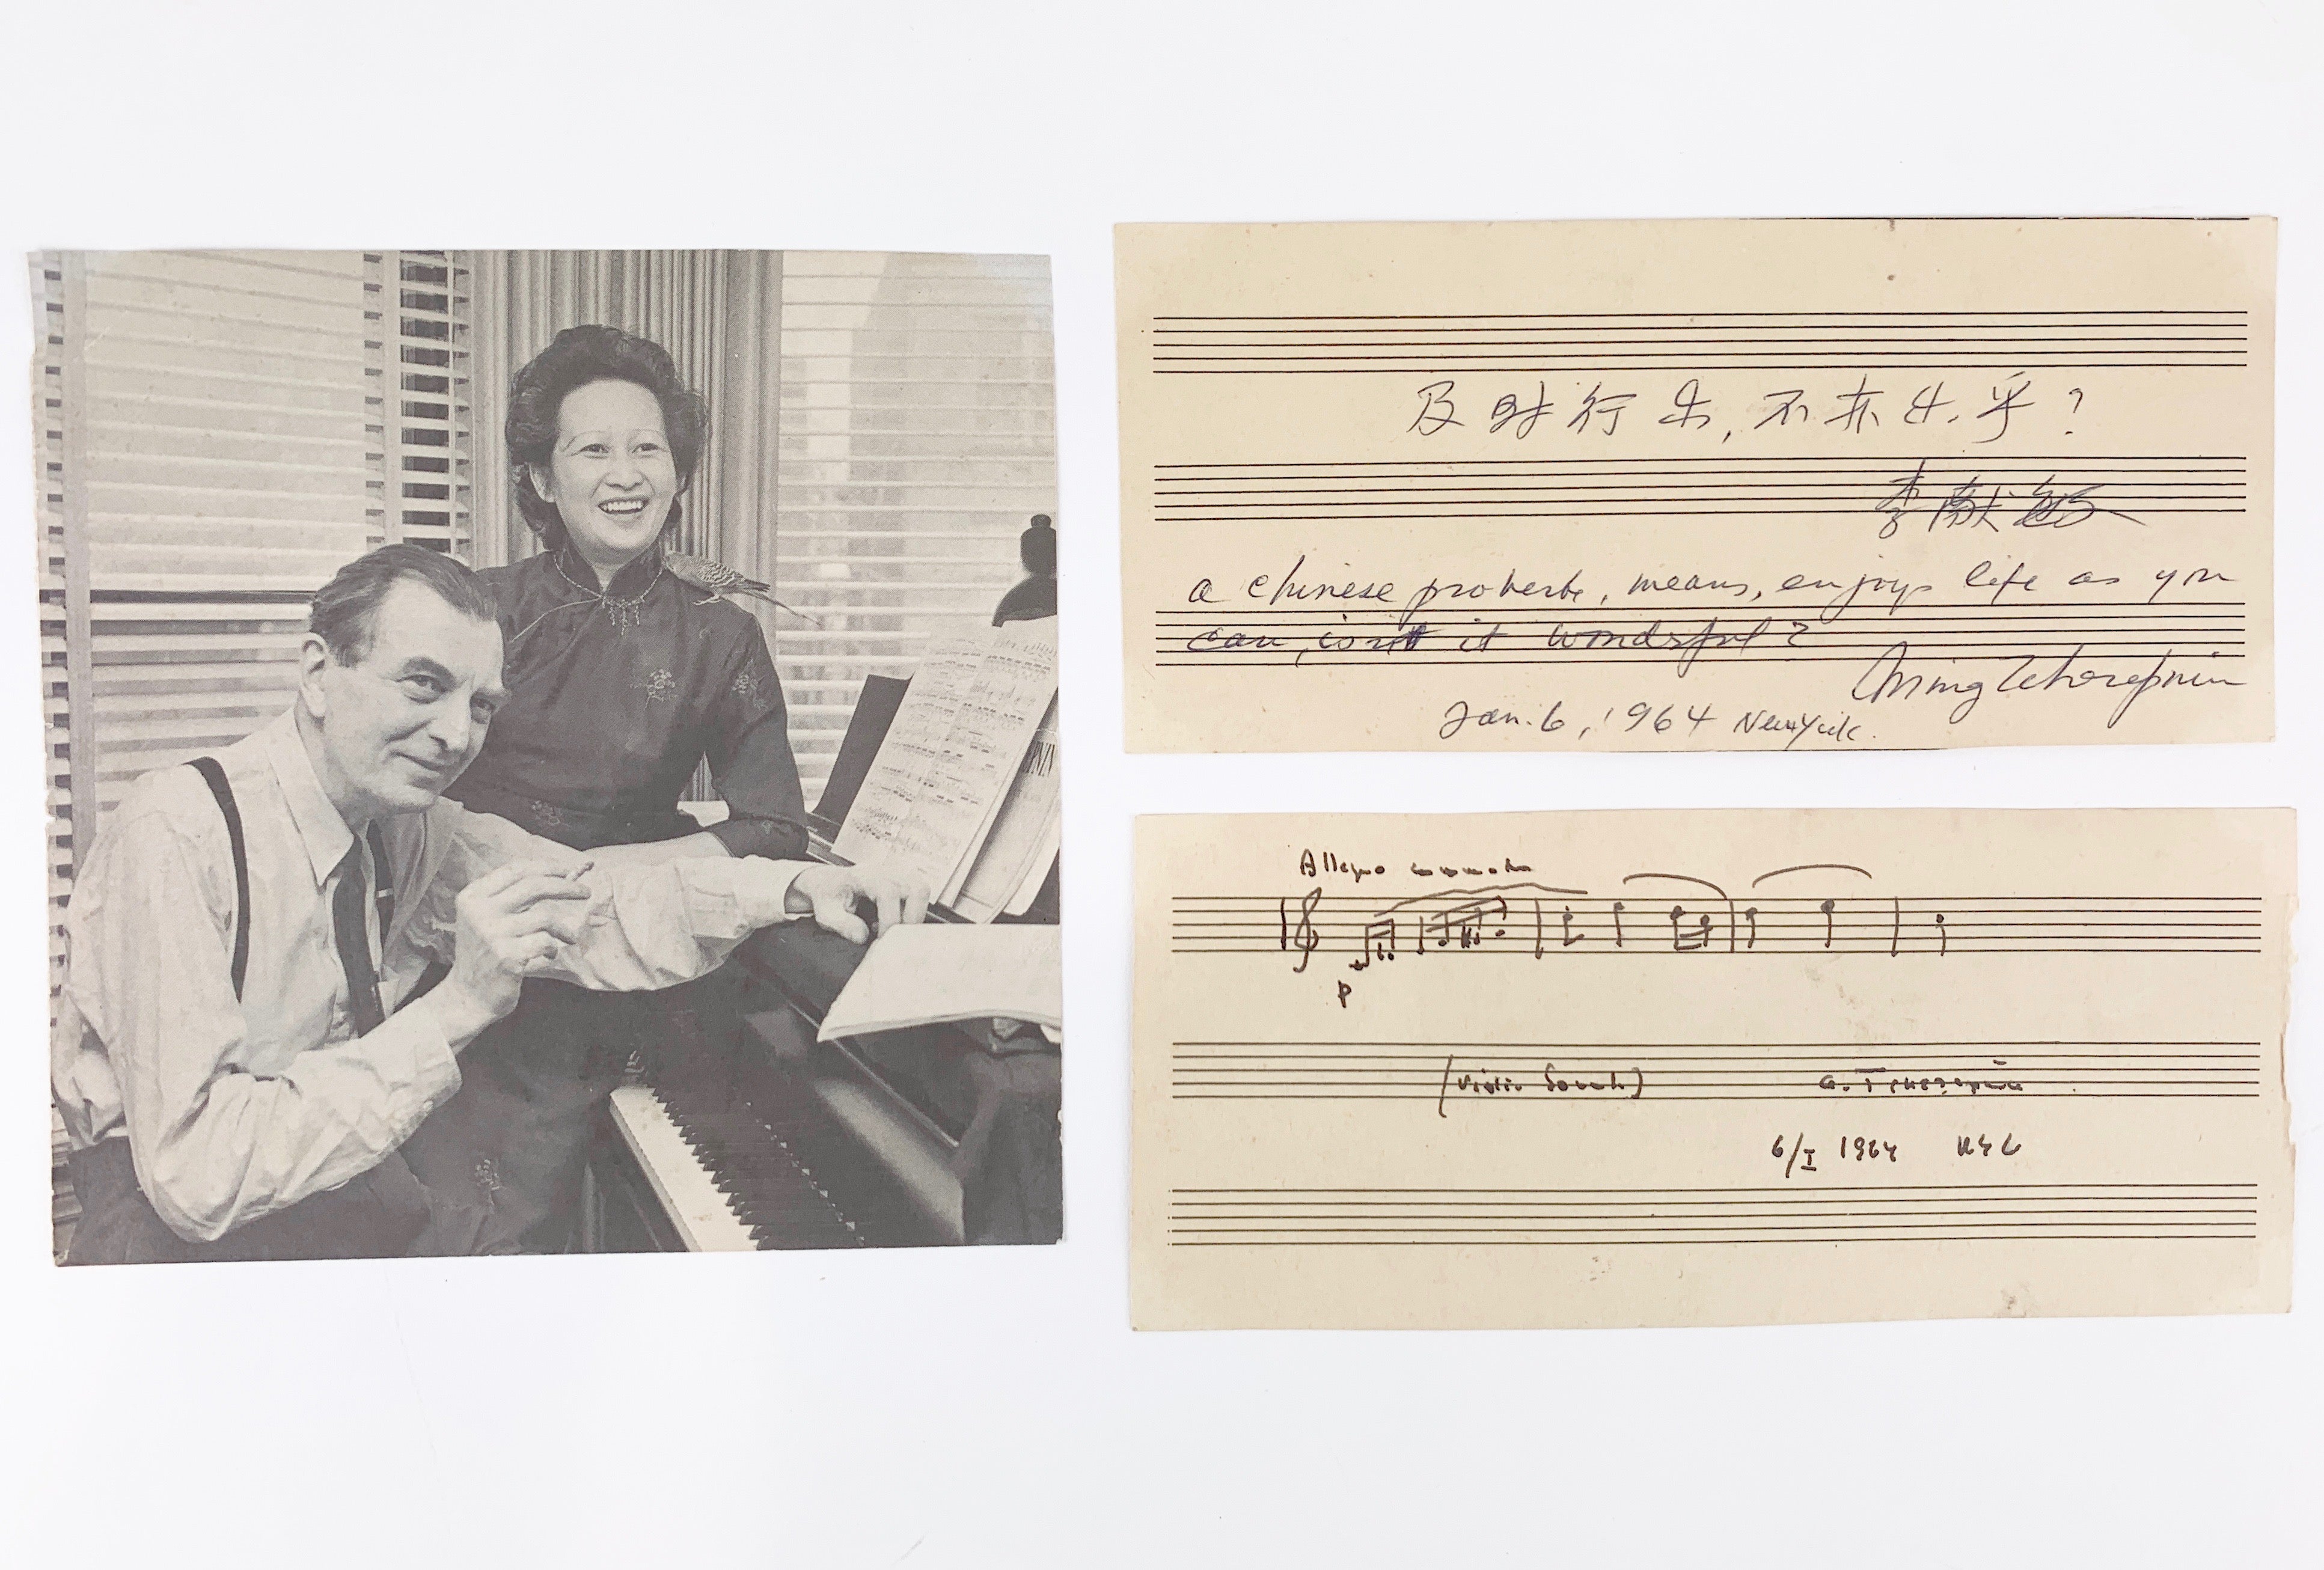 及时行乐,不亦乐乎?
李献敏
a Chinese proverbe, means, enjoys life as you
can, isn't it wonderful?
Ming Tcherepnin
Jan. 6, 1964 New York.
Allegro commodo
p
(Violin Sonata) A. Tcherepnin
6/I 1964 NYC